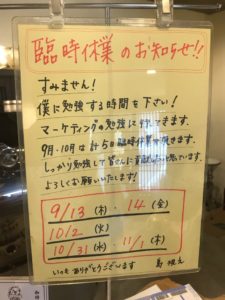 臨時休業のお知らせ!!
すみません!
僕に勉強する時間を下さい!
マーケティングの勉強に行ってきます。
9月・10月は計5日臨時休業で頂きます。
しっかり勉強して皆さんに貢献したいと思っています。
よろしくお願いいたします!
9/13(木)・14(金)
10/2(火)
10/31(水)・11/1(木)
いつもありがとうございます